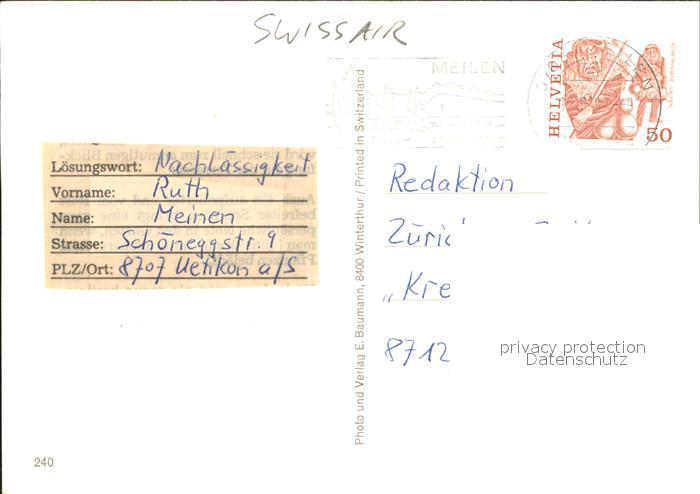 SWISSAIR
MEILEN
HELVETIA
50
Lösungswort: Nachlässigkeit
Vorname: Ruth
Name: Meinen
Strasse: Schöneggstr. 9
PLZ/Ort: 8707 Uetikon a/S
Photo und Verlag E. Baumann, 8400 Winterthur / Printed in Switzerland
Redaktion
Züri
„Kre
8712
privacy protection
Datenschutz
240